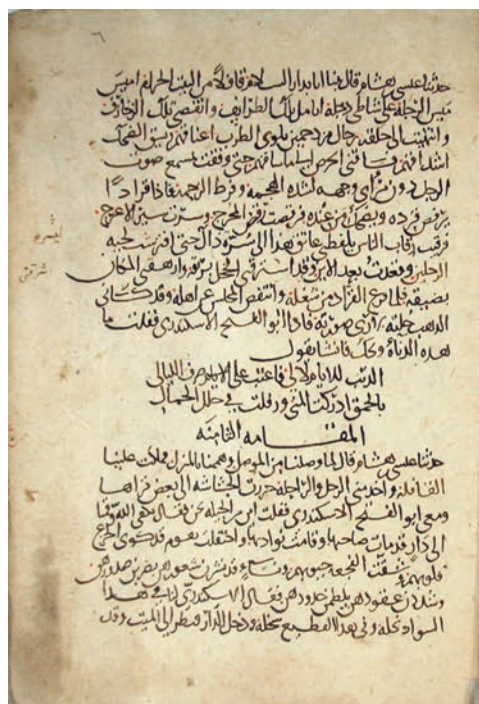 ٦
حدثنا عيسى بن هشام قال بينا انا بدار السلام قافلاً من البيت الحرام اميس
ميس الرجلة على شاطى دجلة اتامل تلك الطرايف واتقصى تلك الزخارف
وانتهيت الى حلقة رجال مزدحمين يلوى الطرب اعناقهم ويشق الضحك
اشداقهم فساقنى الحرص الى ما ساقهم حتى وقفت بمسمع صوت
الرجل دون مرآى وجهه لشدة الهجمة وفرط الزحمة فاذا قرادًا
يرقص قرده ويضحك من عنده فرقصت رقص المحرج وسرت سير الاعرج
فوق رقاب الناس يلفظنى عاتق هذا الى سرة ذاك حتى افترشت لحية
الرجلين وقعدت بعد الاين وقد اشرقنى الخجل بريقه وارهقنى المكان
بضيقه فلما فرغ القراد من شغله وانتفض المجلس عن اهله وقد كسانى
الدهش حليته لارى صورته فاذا ابو الفتح الاسكندرى فقلت ما
هذه الدناءة ويحك فانشا يقول
الذنب للايام لا لى فاعتب على صرف الليالى
بالحمق ادركت المنى ورفلت فى حلل الجمال
المقامه الثامنه
حدثنا عيسى بن هشام قال لما وصلنا من الموصل وهممنا بالمنزل وملكت علينا
القافلة واخذ منى الرحل والراحلة جرت الحشاشه الى بعض قراها
ومعى ابو الفتح الاسكندرى فقلت اين من الحيلة نحن فقال يكفى الله ودفعنا
الى دار قد مات صاحبها وقامت نوادبها واحتفلت بقوم قد كوى الجزع
قلوبهم وشقت الفجعة جيوبهم ونساء قد نشرن شعورهن يضربن صدورهن
وشددن عقودهن يلطمن خدودهن فقال الاسكندرى لنا فى هذا
السواد نخلة وفى هذا القطيع سخلة ودخل الدار فنظر الى الميت وقد
اشرقنى